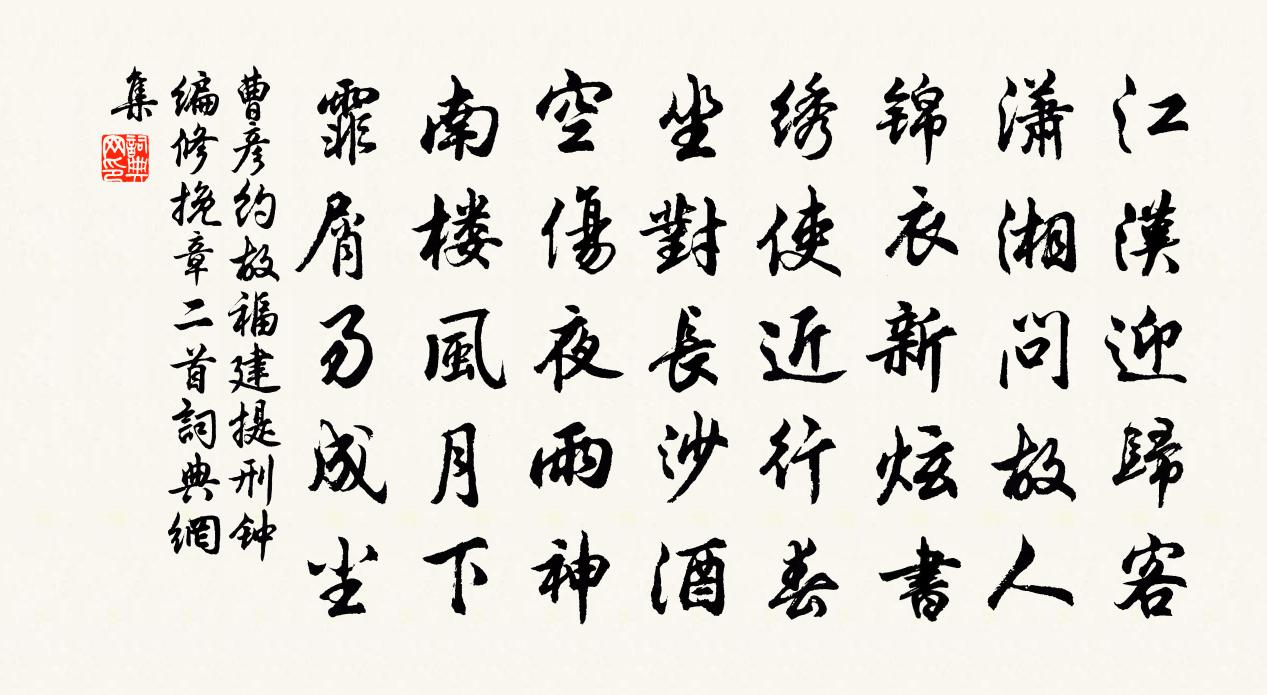 江漢迎歸客
潇湘問故人
锦衣新炫書
绣使近行春
坐對長沙酒
空傷夜雨神
南楼風月下
霏屑易成尘
曹彦约故福建提刑钟
编修挽章二首詞典網
集
詞典
网印